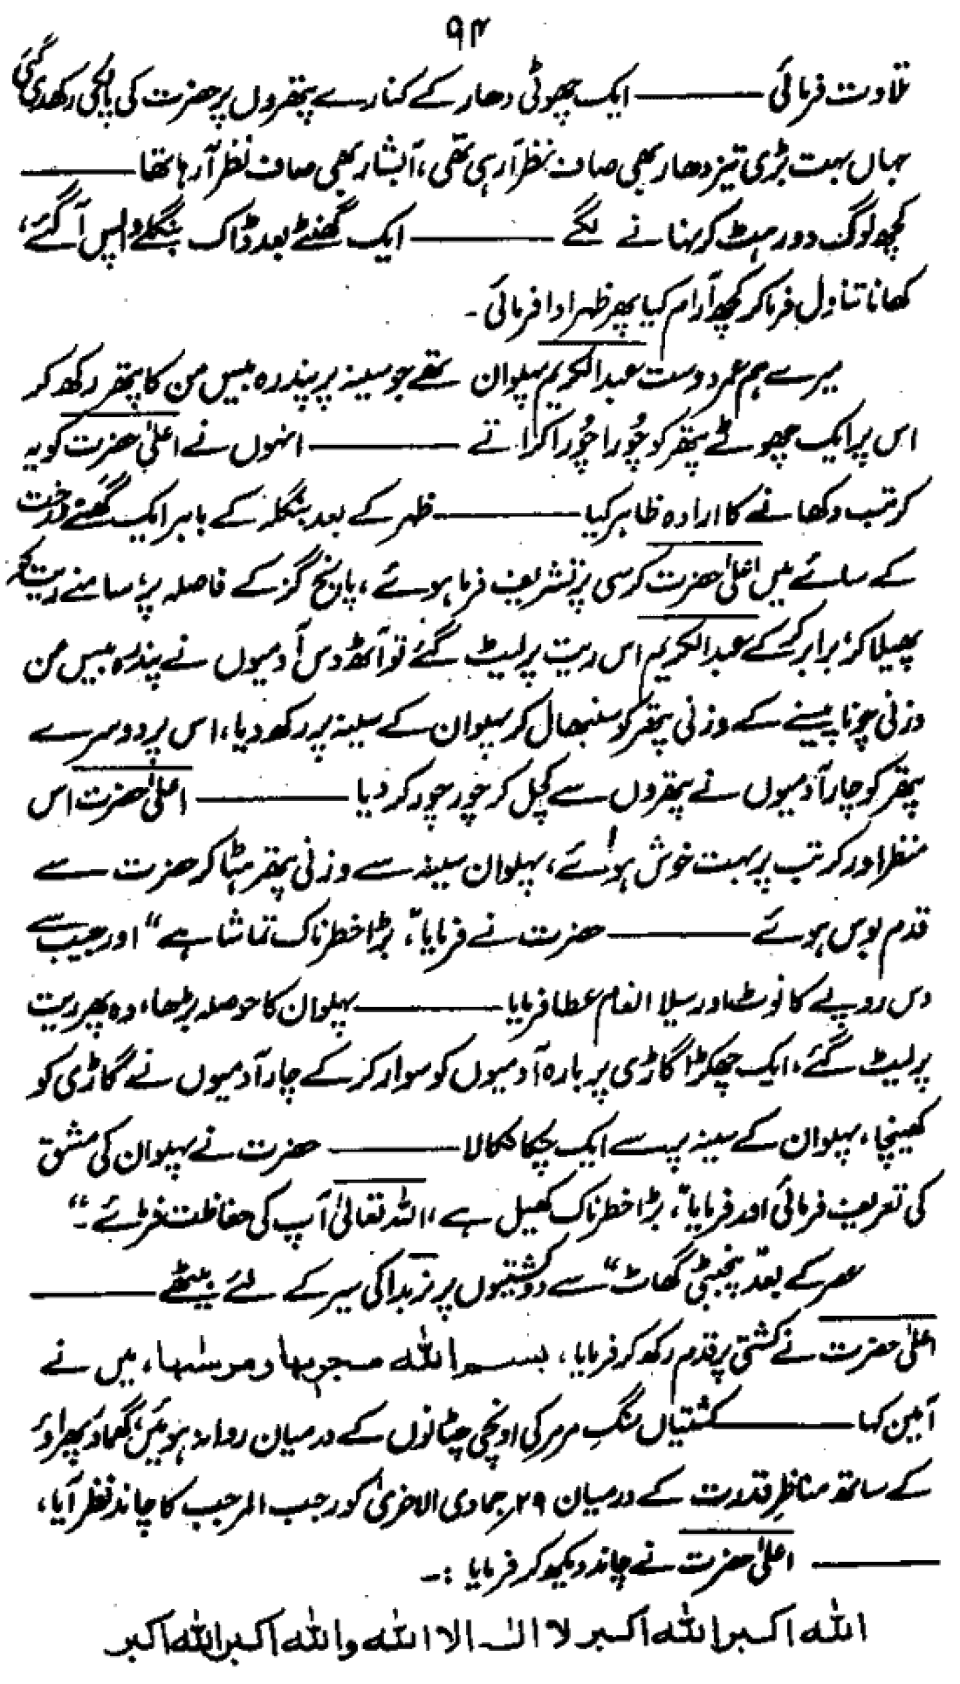 ۹۴
تلاوت فرمائی ——— ایک چھوٹی دھار کے کنارے پتھروں پر حضرت کی پالکی رکھدی گئی
جہاں بہت بڑی تیز دھار بھی صاف نظر آرہی تھی، آبشار بھی صاف نظر آرہا تھا ———
کچھ لوگ دور ہٹ کر نہانے لگے ——— ایک گھنٹے بعد ڈاک بنگلے واپس آگئے،
کھانا تناول فرما کر کچھ آرام کیا پھر ظہر ادا فرمائی ۔
میرے ہم عمر دوست عبدالکریم پہلوان تھے جو سینہ پر پندرہ بیس من کا پتھر رکھ کر
اس پر ایک چھوٹے پتھر کو چُورا چُورا کراتے ——— انہوں نے اعلیٰ حضرت کو یہ
کرتب دکھانے کا ارادہ ظاہر کیا ——— ظہر کے بعد بنگلہ کے باہر ایک گھنے درخت
کے سائے میں اعلیٰ حضرت کرسی پر تشریف فرما ہوئے، پانچ گز کے فاصلہ پر، سامنے ریت
پھیلا کر، برابر کرکے عبدالکریم اس ریت پر لیٹ گئے تو آٹھ دس آدمیوں نے پندرہ بیس من
وزنی چونا پیسنے کے وزنی پتھر کو سنبھال کر پہلوان کے سینہ پر رکھ دیا، اس پر دوسرے
پتھر کو چار آدمیوں نے پتھروں سے کچل کر چور چور کر دیا ——— اعلیٰ حضرت اس
منظر اور کرتب پر بہت خوش ہوئے، پہلوان سینہ سے وزنی پتھر ہٹا کر حضرت سے
قدم بوس ہوئے ——— حضرت نے فرمایا، "بڑا خطرناک تماشا ہے" اور جیب سے
دس روپے کا نوٹ اور سیلا انعام عطا فرمایا ——— پہلوان کا حوصلہ بڑھا، وہ پھر ریت
پر لیٹ گئے، ایک چھکڑا گاڑی پر بارہ آدمیوں کو سوار کرکے چار آدمیوں نے گاڑی کو
کھینچا، پہلوان کے سینہ پر سے ایک چکا نکالا ——— حضرت نے پہلوان کی مشق
کی تعریف فرمائی اور فرمایا، "بڑا خطرناک کھیل ہے، اللہ تعالیٰ آپ کی حفاظت فرمائے ۔"
عصر کے بعد "پنچبٹی گھاٹ" سے دو کشتیوں پر نربدا کی سیر کے لئے بیٹھے ———
اعلیٰ حضرت نے کشتی پر قدم رکھ کر فرمایا، بسم اللہ مجریہا و مرسٰہا، میں نے
آمین کہا ——— کشتیاں سنگِ مرمر کی اونچی چٹانوں کے درمیان روانہ ہوئیں، گھماؤ پھراؤ
کے ساتھ مناظرِ قدرت کے درمیان ۲۹؍ جمادی الاخریٰ کو رجب المرجب کا چاند نظر آیا،
——— اعلیٰ حضرت نے چاند دیکھ کر فرمایا :۔
اللہ اکبر اللہ اکبر لا الٰہ الا اللہ واللہ اکبر اللہ اکبر